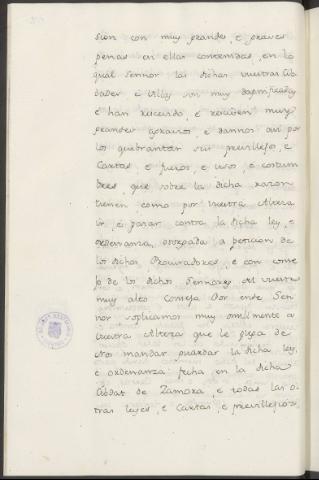 sion con muy grandes, e graves
penas en ellas contenidas, en lo
qual Sennor las dichas vuestras Cib
dades e Villas son muy dapnificadas
e han rescevido, e resciben muy
grandes agravios, e dannos asi por
los quebrantar sus previllejos, e
Cartas, e fueros, e usos, e costum
bres, que sobre la dicha razon
tienen como por vuestra Alteza
ir, e pasar contra la dicha ley, e
ordenanza, otorgada a peticion de
los dichos Procuradores, e con conse
jo de los dichos Sennores del vuestro
muy alto Consejo Por ende Sen
nor suplicamos muy omilmente a
vuestra Alteza que le plega de
nos mandar guardar la dicha ley,
e ordenanza fecha en la dicha
Cibdat de Zamora, e todas las o
tras leyes, e Cartas, e previllejos,